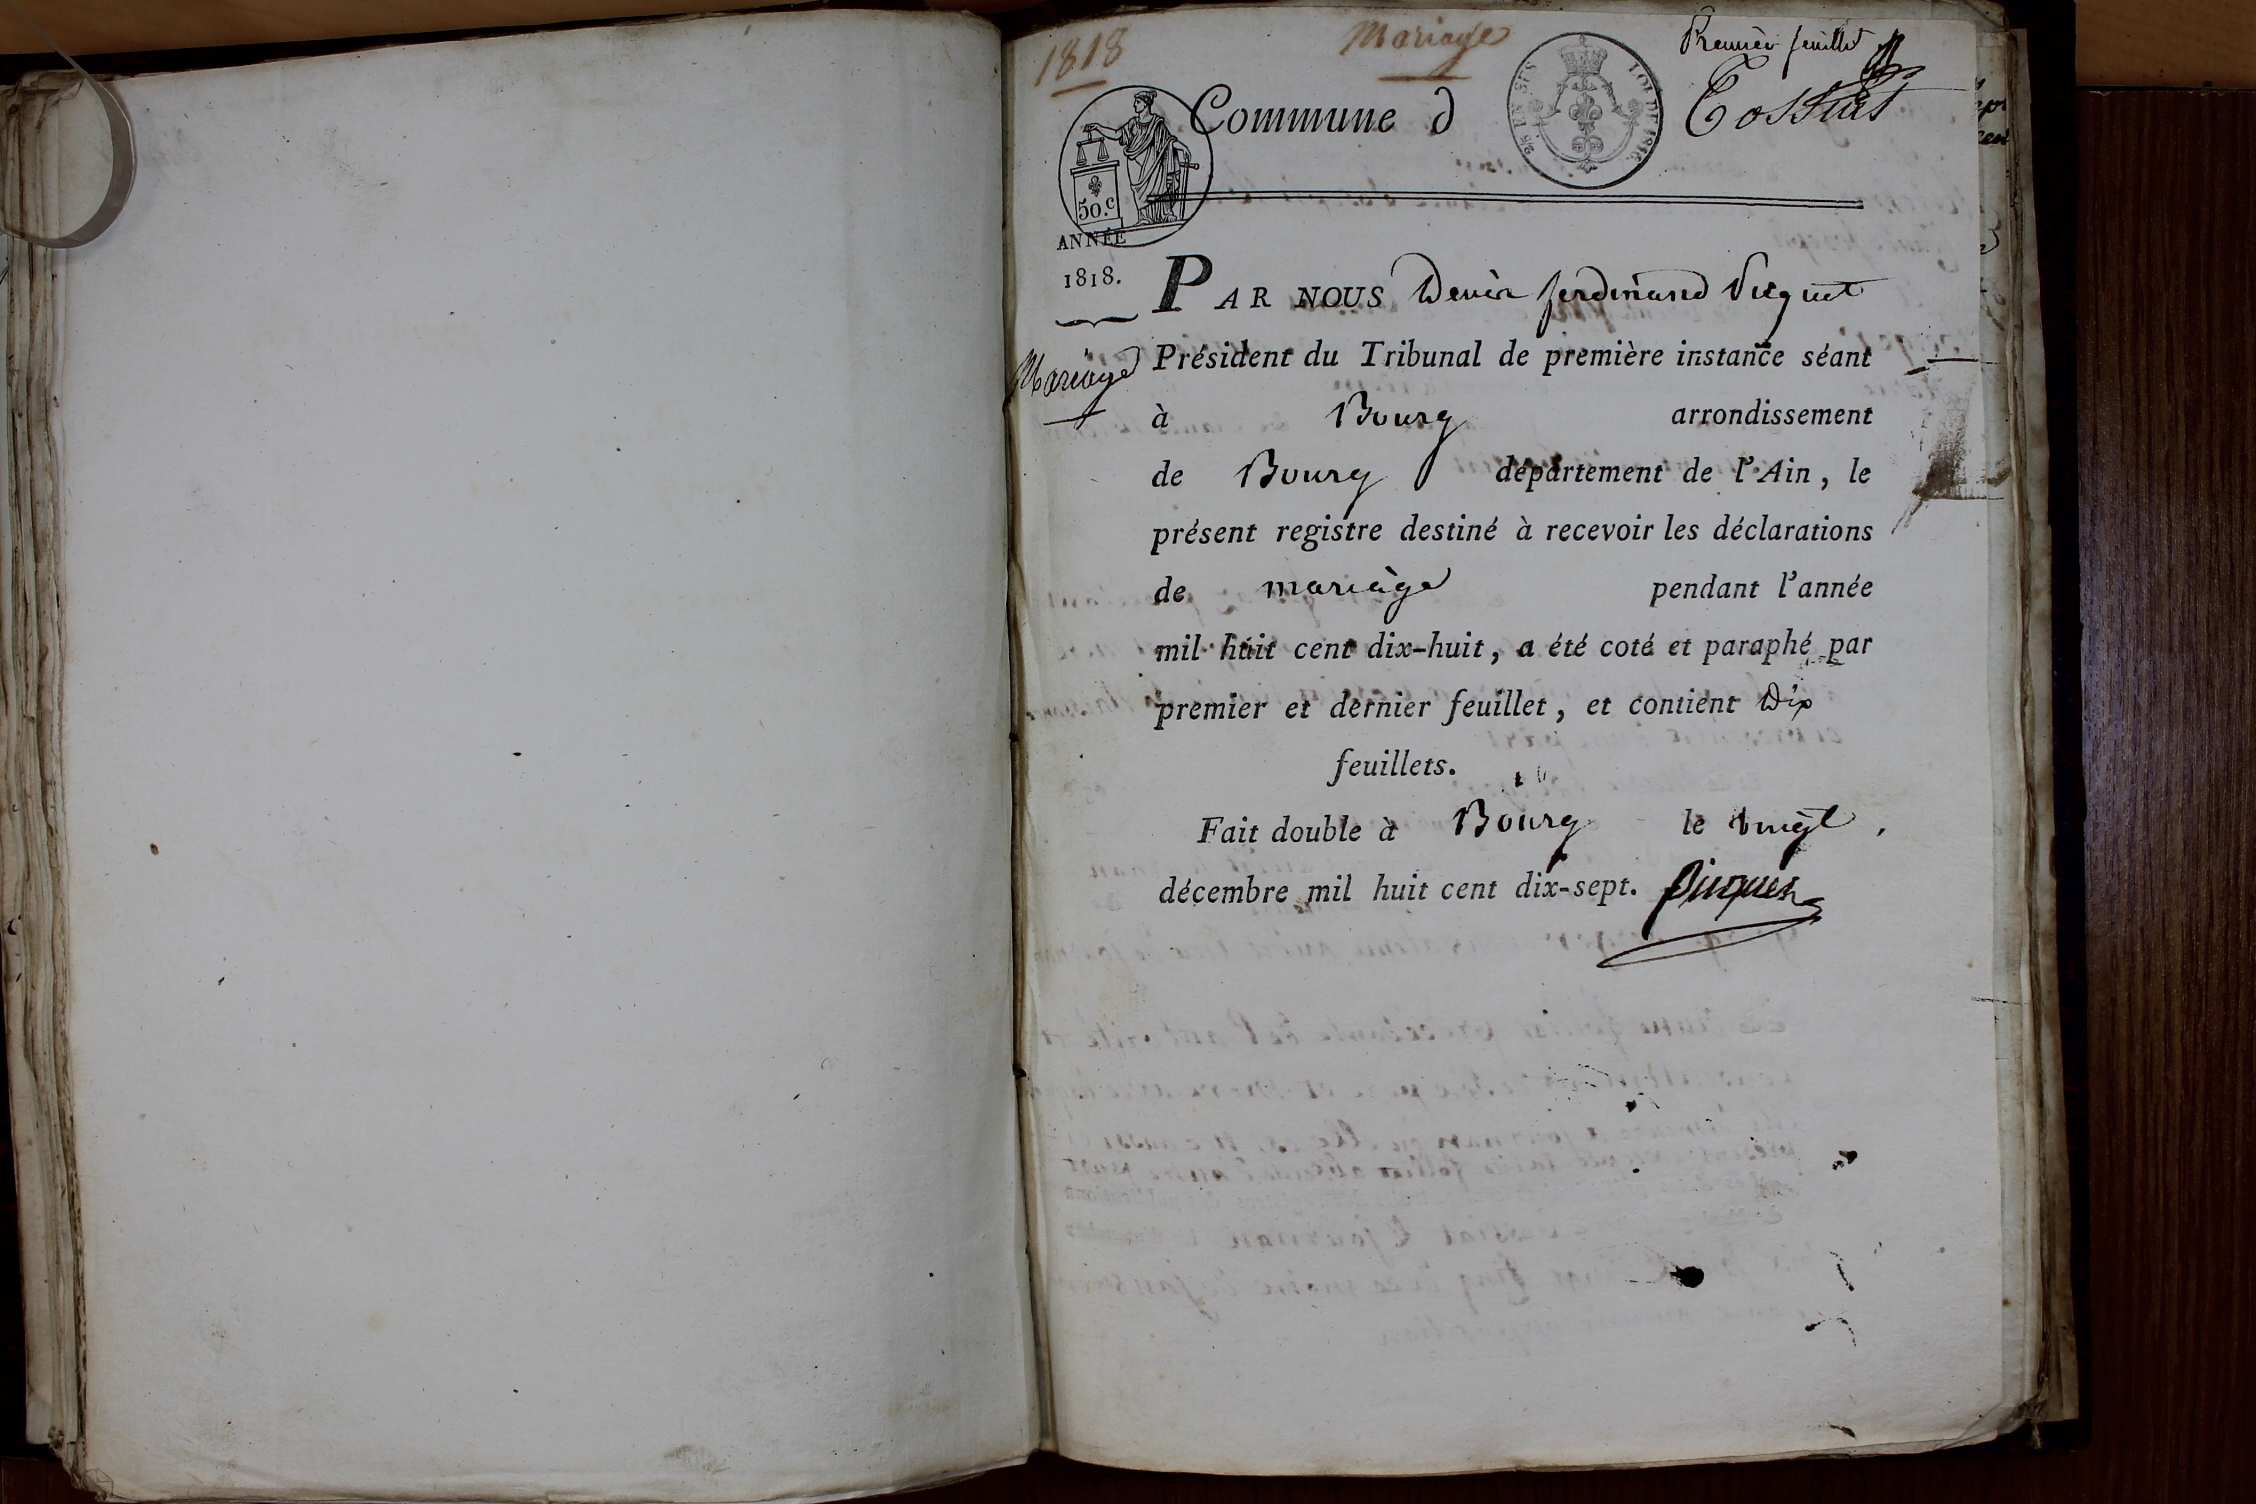 1818
Mariage
Premier feuillet
Commune d Cossiat
50.c
LOI DE 1816.
ANNÉE
1818.
PAR NOUS Denis ferdinand Picquet
Mariage
Président du Tribunal de première instance séant
à Bourg arrondissement
de Bourg département de l'Ain, le
présent registre destiné à recevoir les déclarations
de mariage pendant l'année
mil huit cent dix-huit, a été coté et paraphé par
premier et dernier feuillet, et contient Dix
feuillets.
Fait double à Bourg le vingt
décembre mil huit cent dix-sept. Picquet